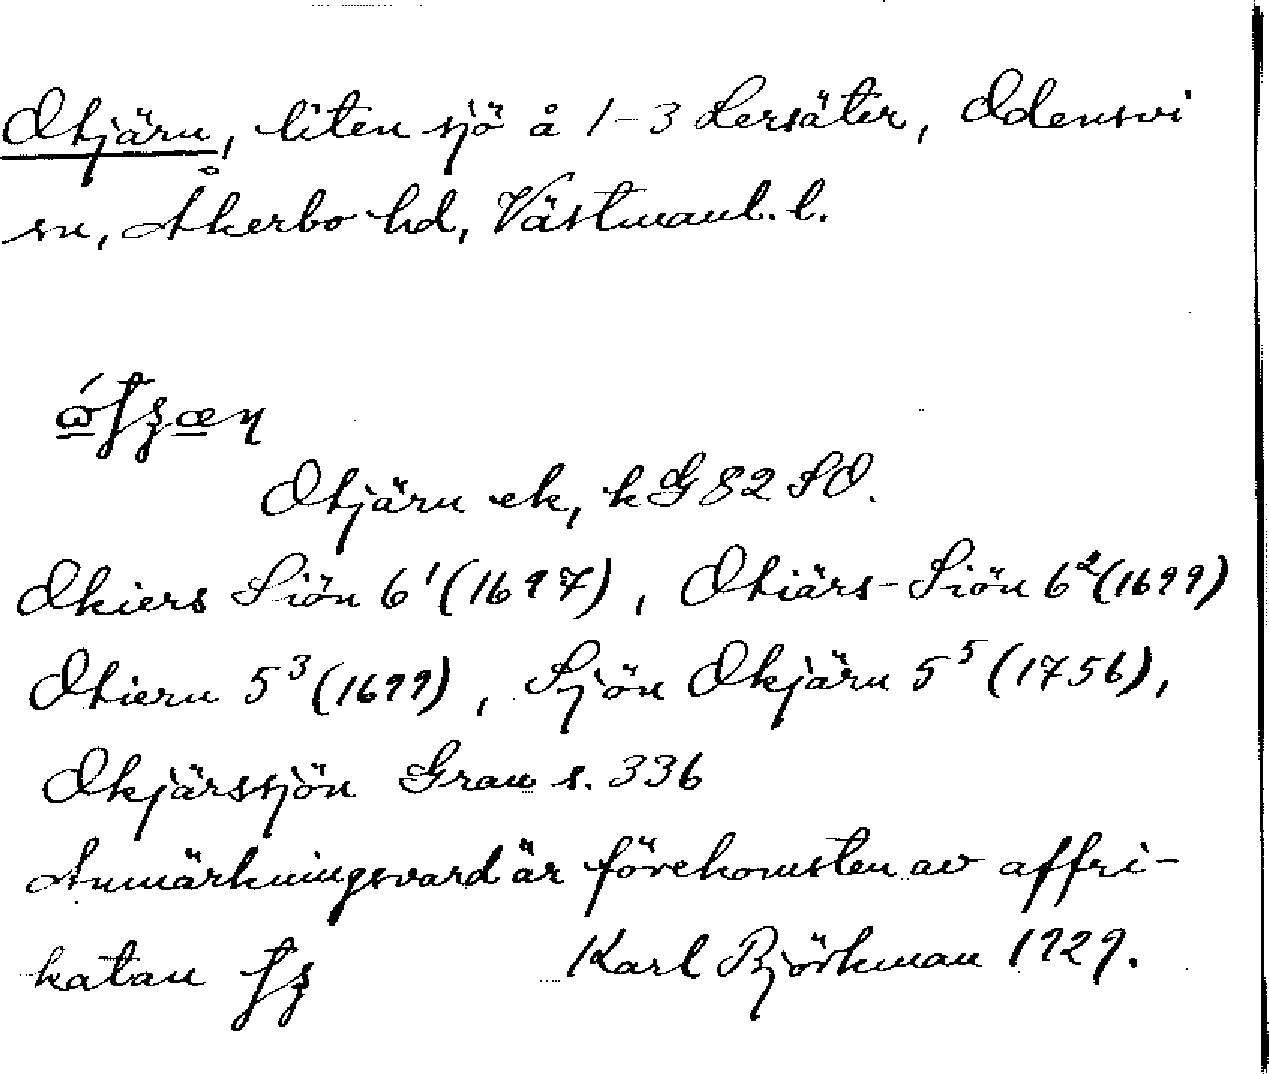 Otjärn, liten sjö å 1-3 Lersäter, Odensvi
sn, Åkerbo hd, Västmanl. l.
Otjärn ek, kG 82 SO.
Okiers Siön 6¹ (1697), Otiärs-Siön 6² (1699)
Otiern 5³ (1699), Sjön Okjärn 5⁵ (1756),
Okjärssjön Grau s. 336
Anmärkningsvard är förekomsten av affri-
katan
Karl Björkman 1929.